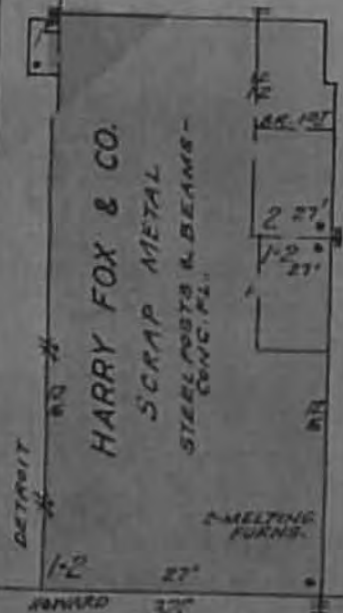 HARRY FOX & CO.
SCRAP METAL
STEEL POSTS & BEAMS-
CONC. FL.
BR. 1ST
2 27'
1-2
27'
DETROIT
2-MELTING
FURNS.
1-2
27'
HOWARD